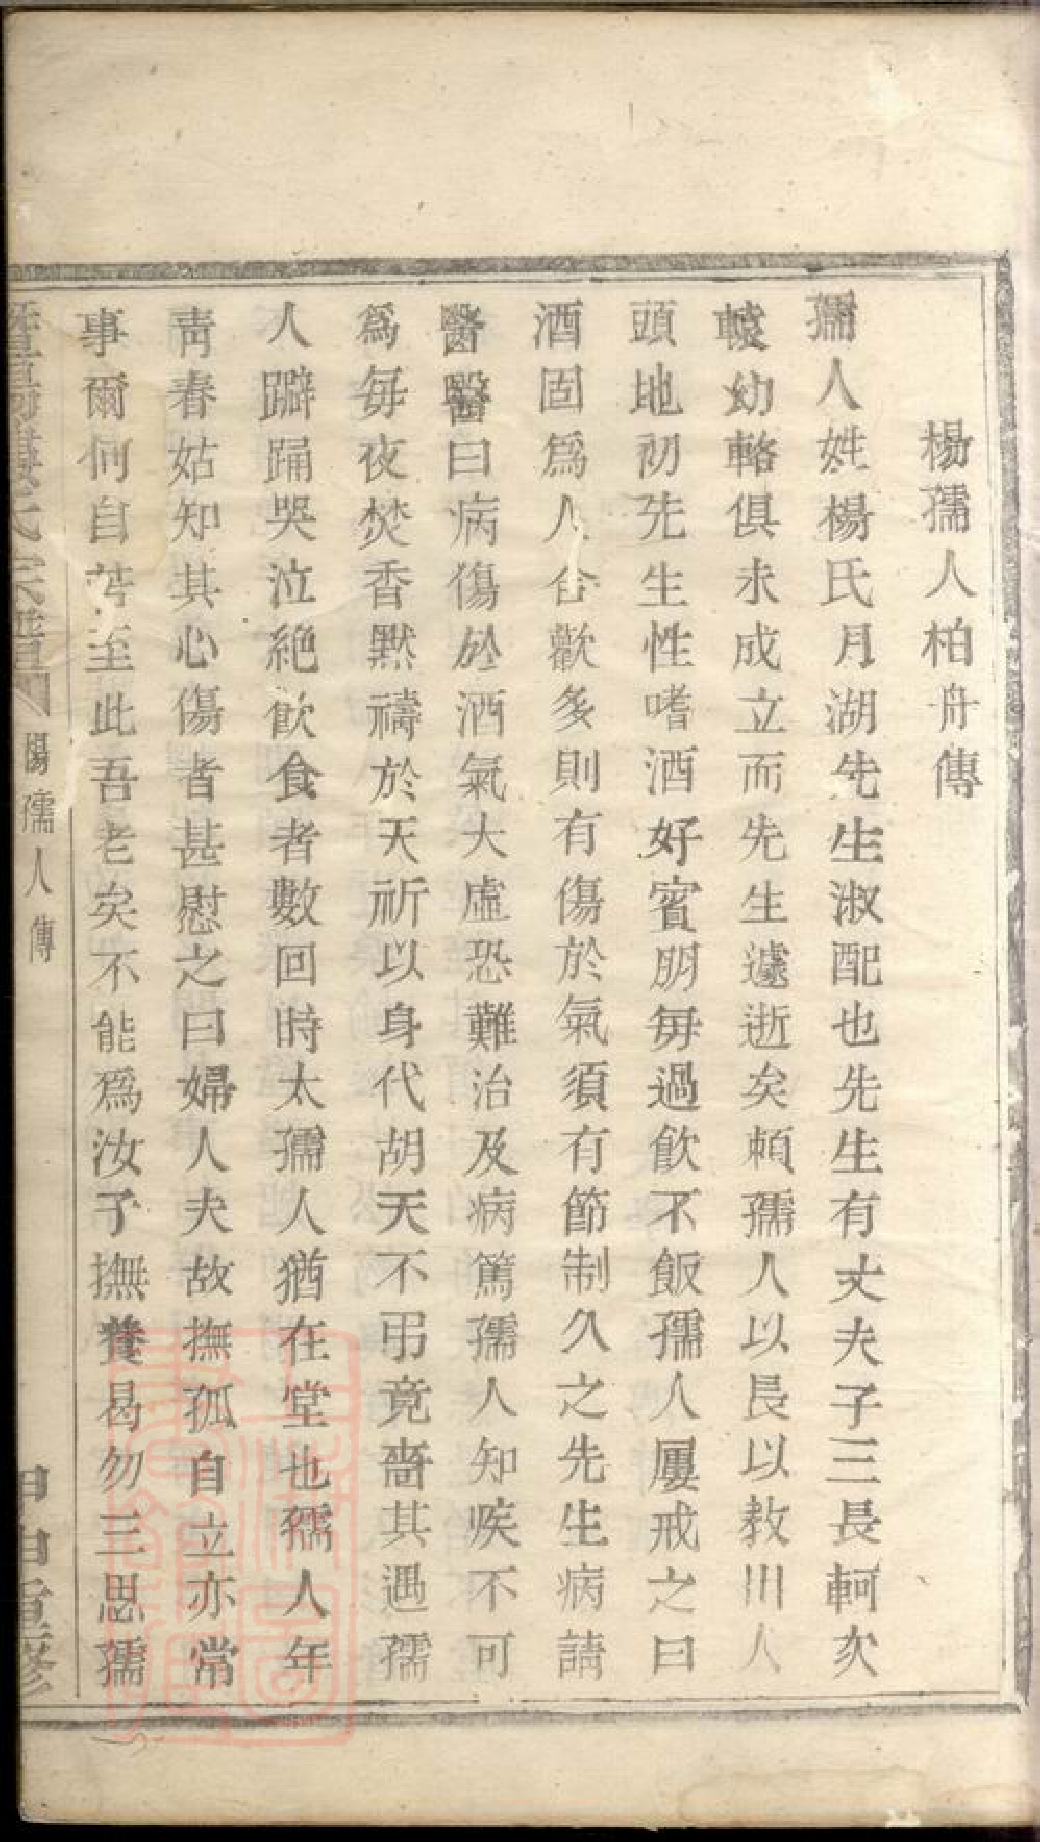 楊孺人柏舟傳
孺人姓楊氏月湖先生淑配也先生有丈夫子三長軻次
轅幼輅俱未成立而先生遽逝矣賴孺人以長以教出人
頭地初先生性嗜酒好賓朋每過飲不飯孺人屢戒之曰
酒固爲人合歡多則有傷於氣須有節制久之先生病請
醫醫曰病傷於酒氣大虛恐難治及病篤孺人知疾不可
爲每夜焚香默禱於天祈以身代胡天不弔竟嗇其遇孺
人躃踊哭泣絶飲食者數回時太孺人猶在堂也孺人年
靑春姑知其心傷者甚慰之曰婦人夫故撫孤自立亦常
事爾何自苦至此吾老矣不能爲汝子撫養曷勿三思孺
氏宗譜
楊孺人傳
甲申重修